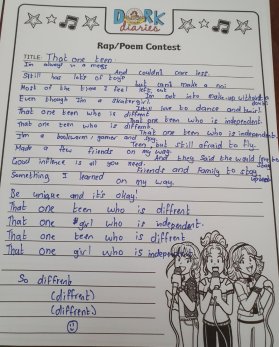 DORK
diaries
Rap/Poem Contest
TITLE: That one teen
I'm always in a mess
And couldn't care less.
Still has lots of toys
but can't make a noi
Most of the time I feel left out
out into make-up without a
Even though I'm a skatergirl
still love to dance and twirl.
That one teen who is diffrent
That one teen who is independent.
That one teen who is diffrent,
That one teen who is independent.
I'm a bookworm, gamer and
Teen, but still afraid to fly.
Made a few friends on my way.
And they said the world
Good inflence is all you need.
Friends and Family to stay
Something I learned
on my way.
Be unique and it's okay!
That one teen who is diffrent
That one girl who is independent.
That one teen who is diffrent
That one girl who is independent.
So diffrent
(diffrent)
(diffrent)